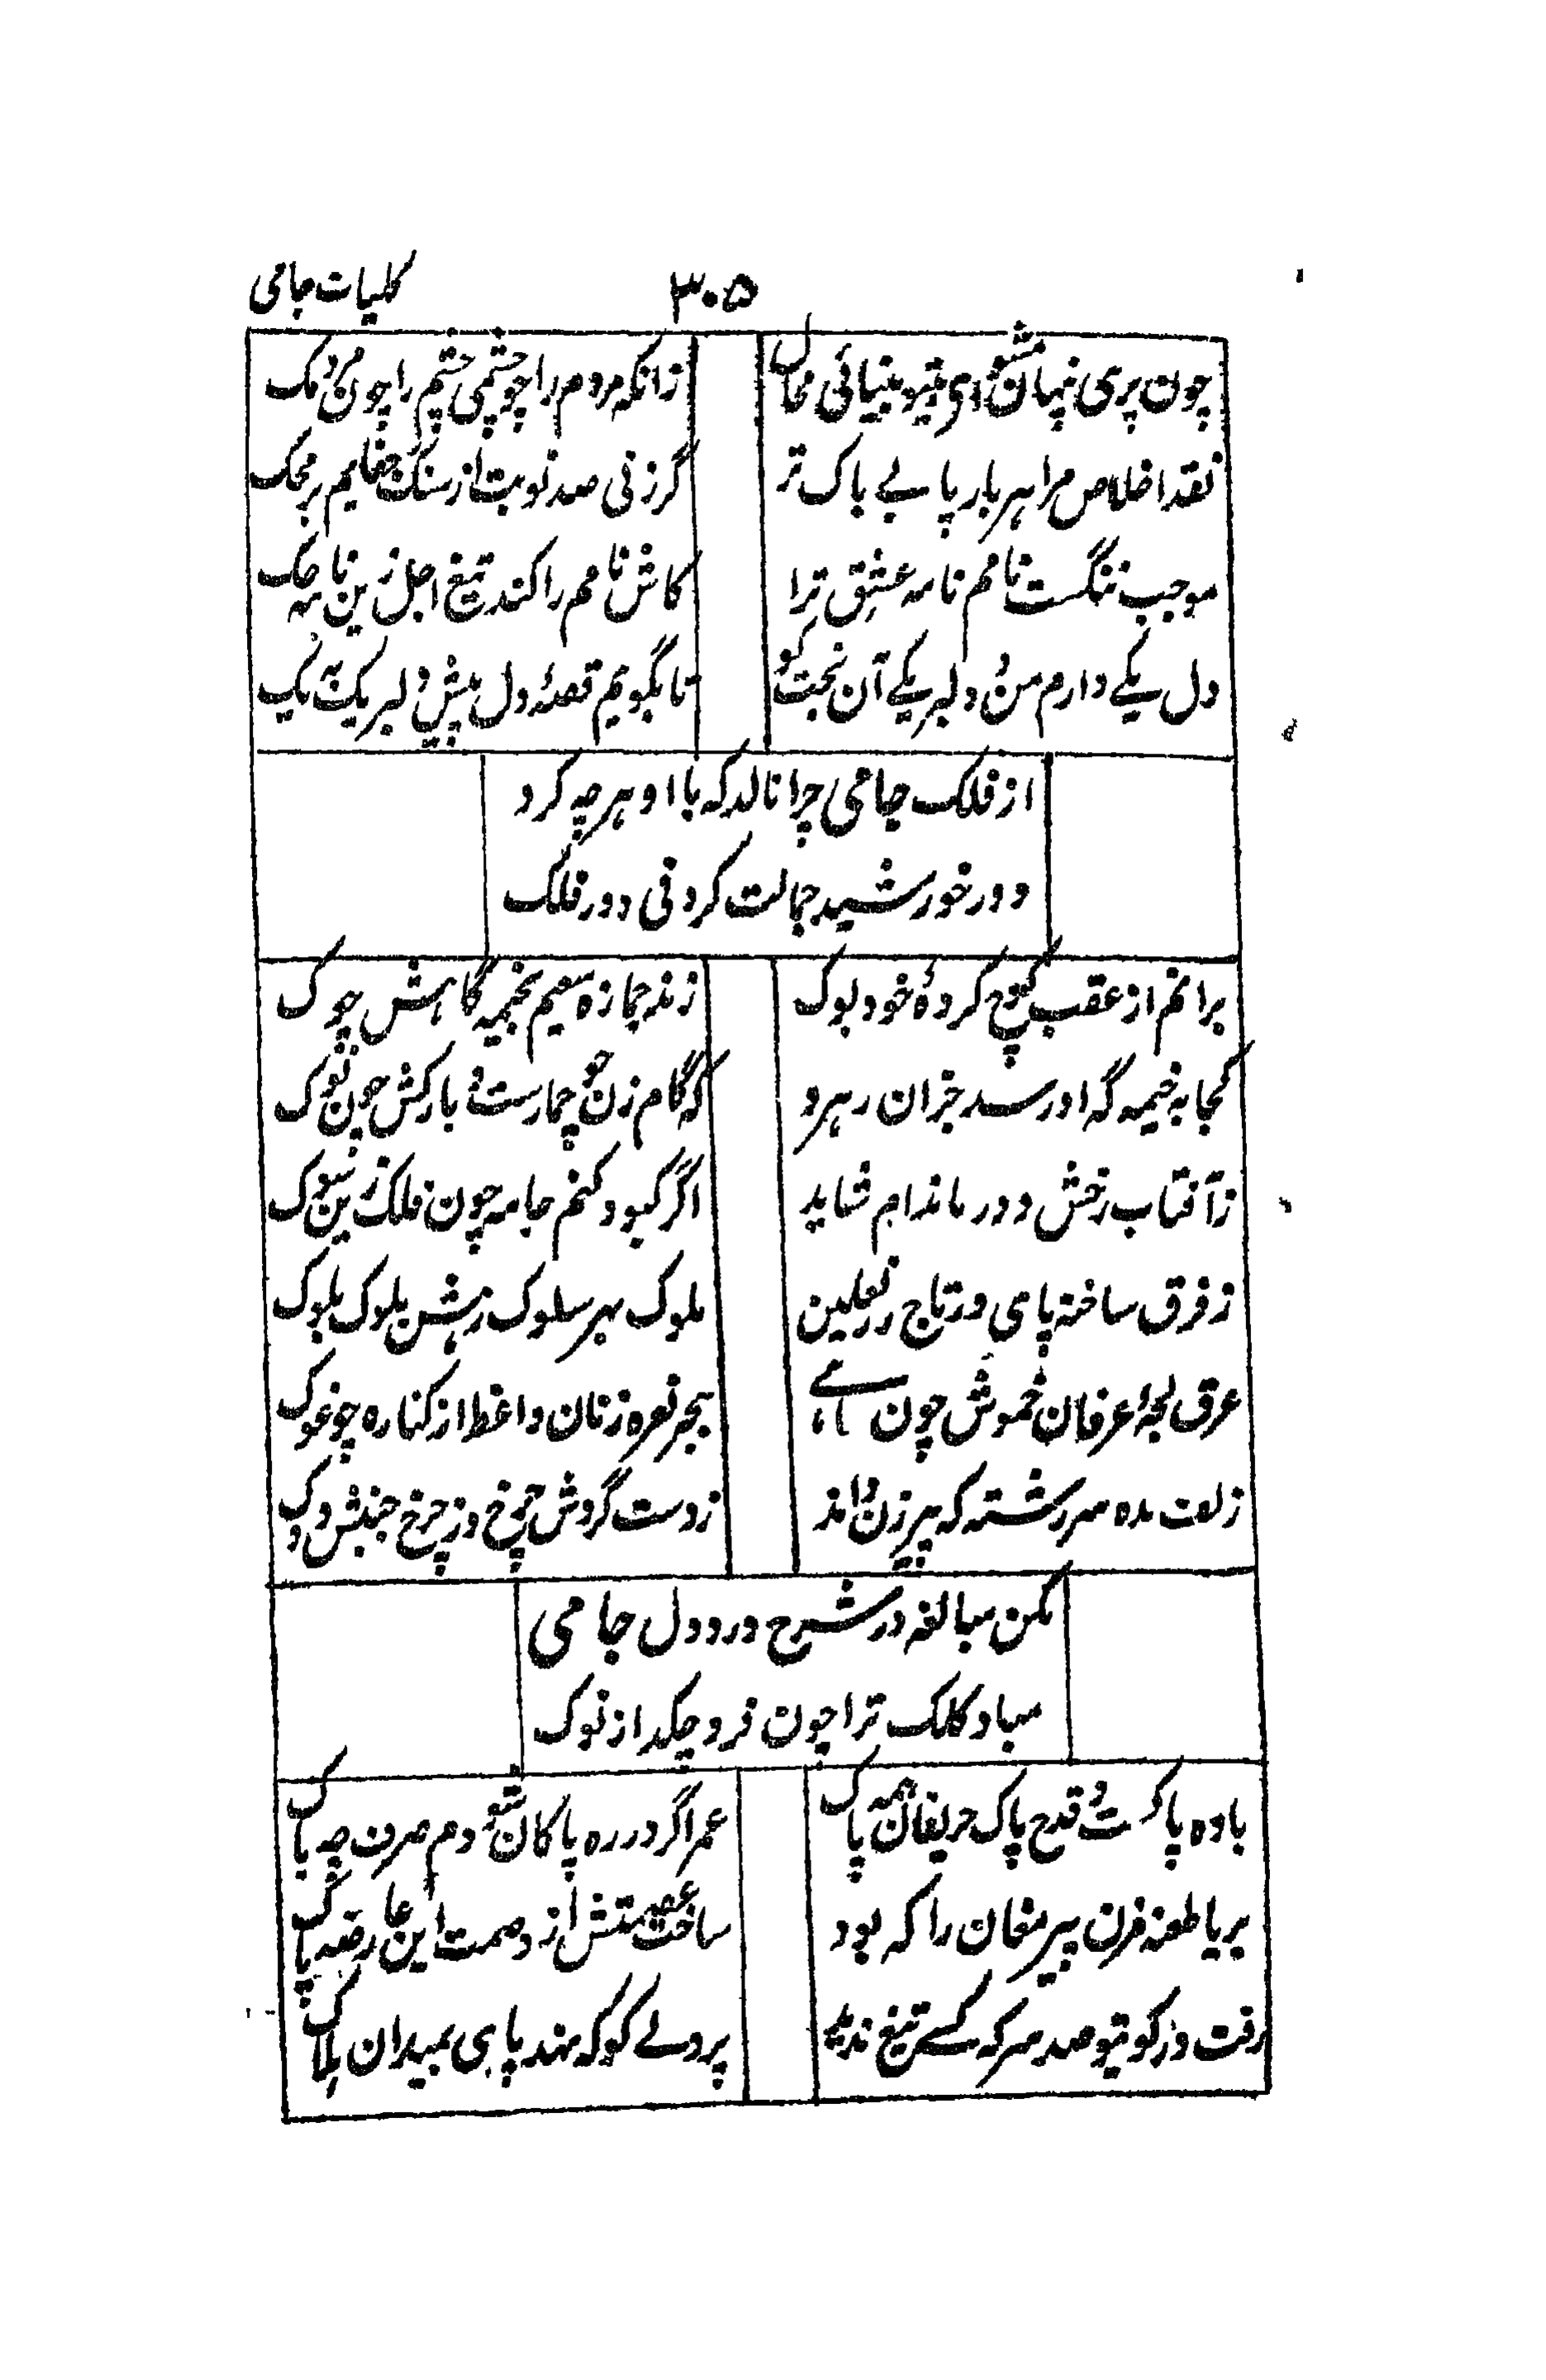 ۳۰۵ کلیات جامی
چون پری پنهان مشو ای بیتو بینائی محال زانکه مردم را چو چشمی چشم را چون مردمک
نقد اخلاص مرا هر بار یابے پاک تر گر زنی صد نوبت از سنگ جفایم بر محک
موجب ننگست نامم نامه عشق ترا کاش نامم را کند تیغ اجل زین نامه حک
دل یکے دارم من و دلبر یکے آن بخت کو تا بگویم قصهٔ دل پیش دلبر یک بیک
از فلک جامی چرا نالد که با او هر چه کرد
دور خورشید جمالت کرد نی دور فلک
برانم از عقب کوچ کردهٔ خود بوک زند جمازه سعیم بخیمه گاهش چوک
کجا به خیمه گه او رسد خزان رهرو که گام زن چو حمارست و بارکش چون نوک
ز آفتاب رخش دور مانده‌ام شاید اگر کبود کنم جامه چون فلک زین سوک
ز فرق ساخته پای و ز تاج زر نعلین ملوک بهر سلوک رهش بلوک بلوک
غرق لجهٔ عرفان خموش چون ماهے بجهر نعره زنان واعظ از کناره چو غوک
ز لعت مده سر رشته که پیرزن داند ز دست گردش چرخ و ز چرخ جنبش دوک
مکن مبالغه در شرح درد دل جامی
مباد کلک ترا چون فرو چکد از نوک
باده پاک ست و قدح پاک حریفان همه پاک عمر اگر در ره پاکان شودم صرف چه باک
بریا طعنه مزن پیر مغان را که بود ساخت عصمتش از وصمت این عارضه پاک
رفت در کو تیو صد سر که کسے تیغ ندید پر دلے کو که نهد پای بمیدان هلاک